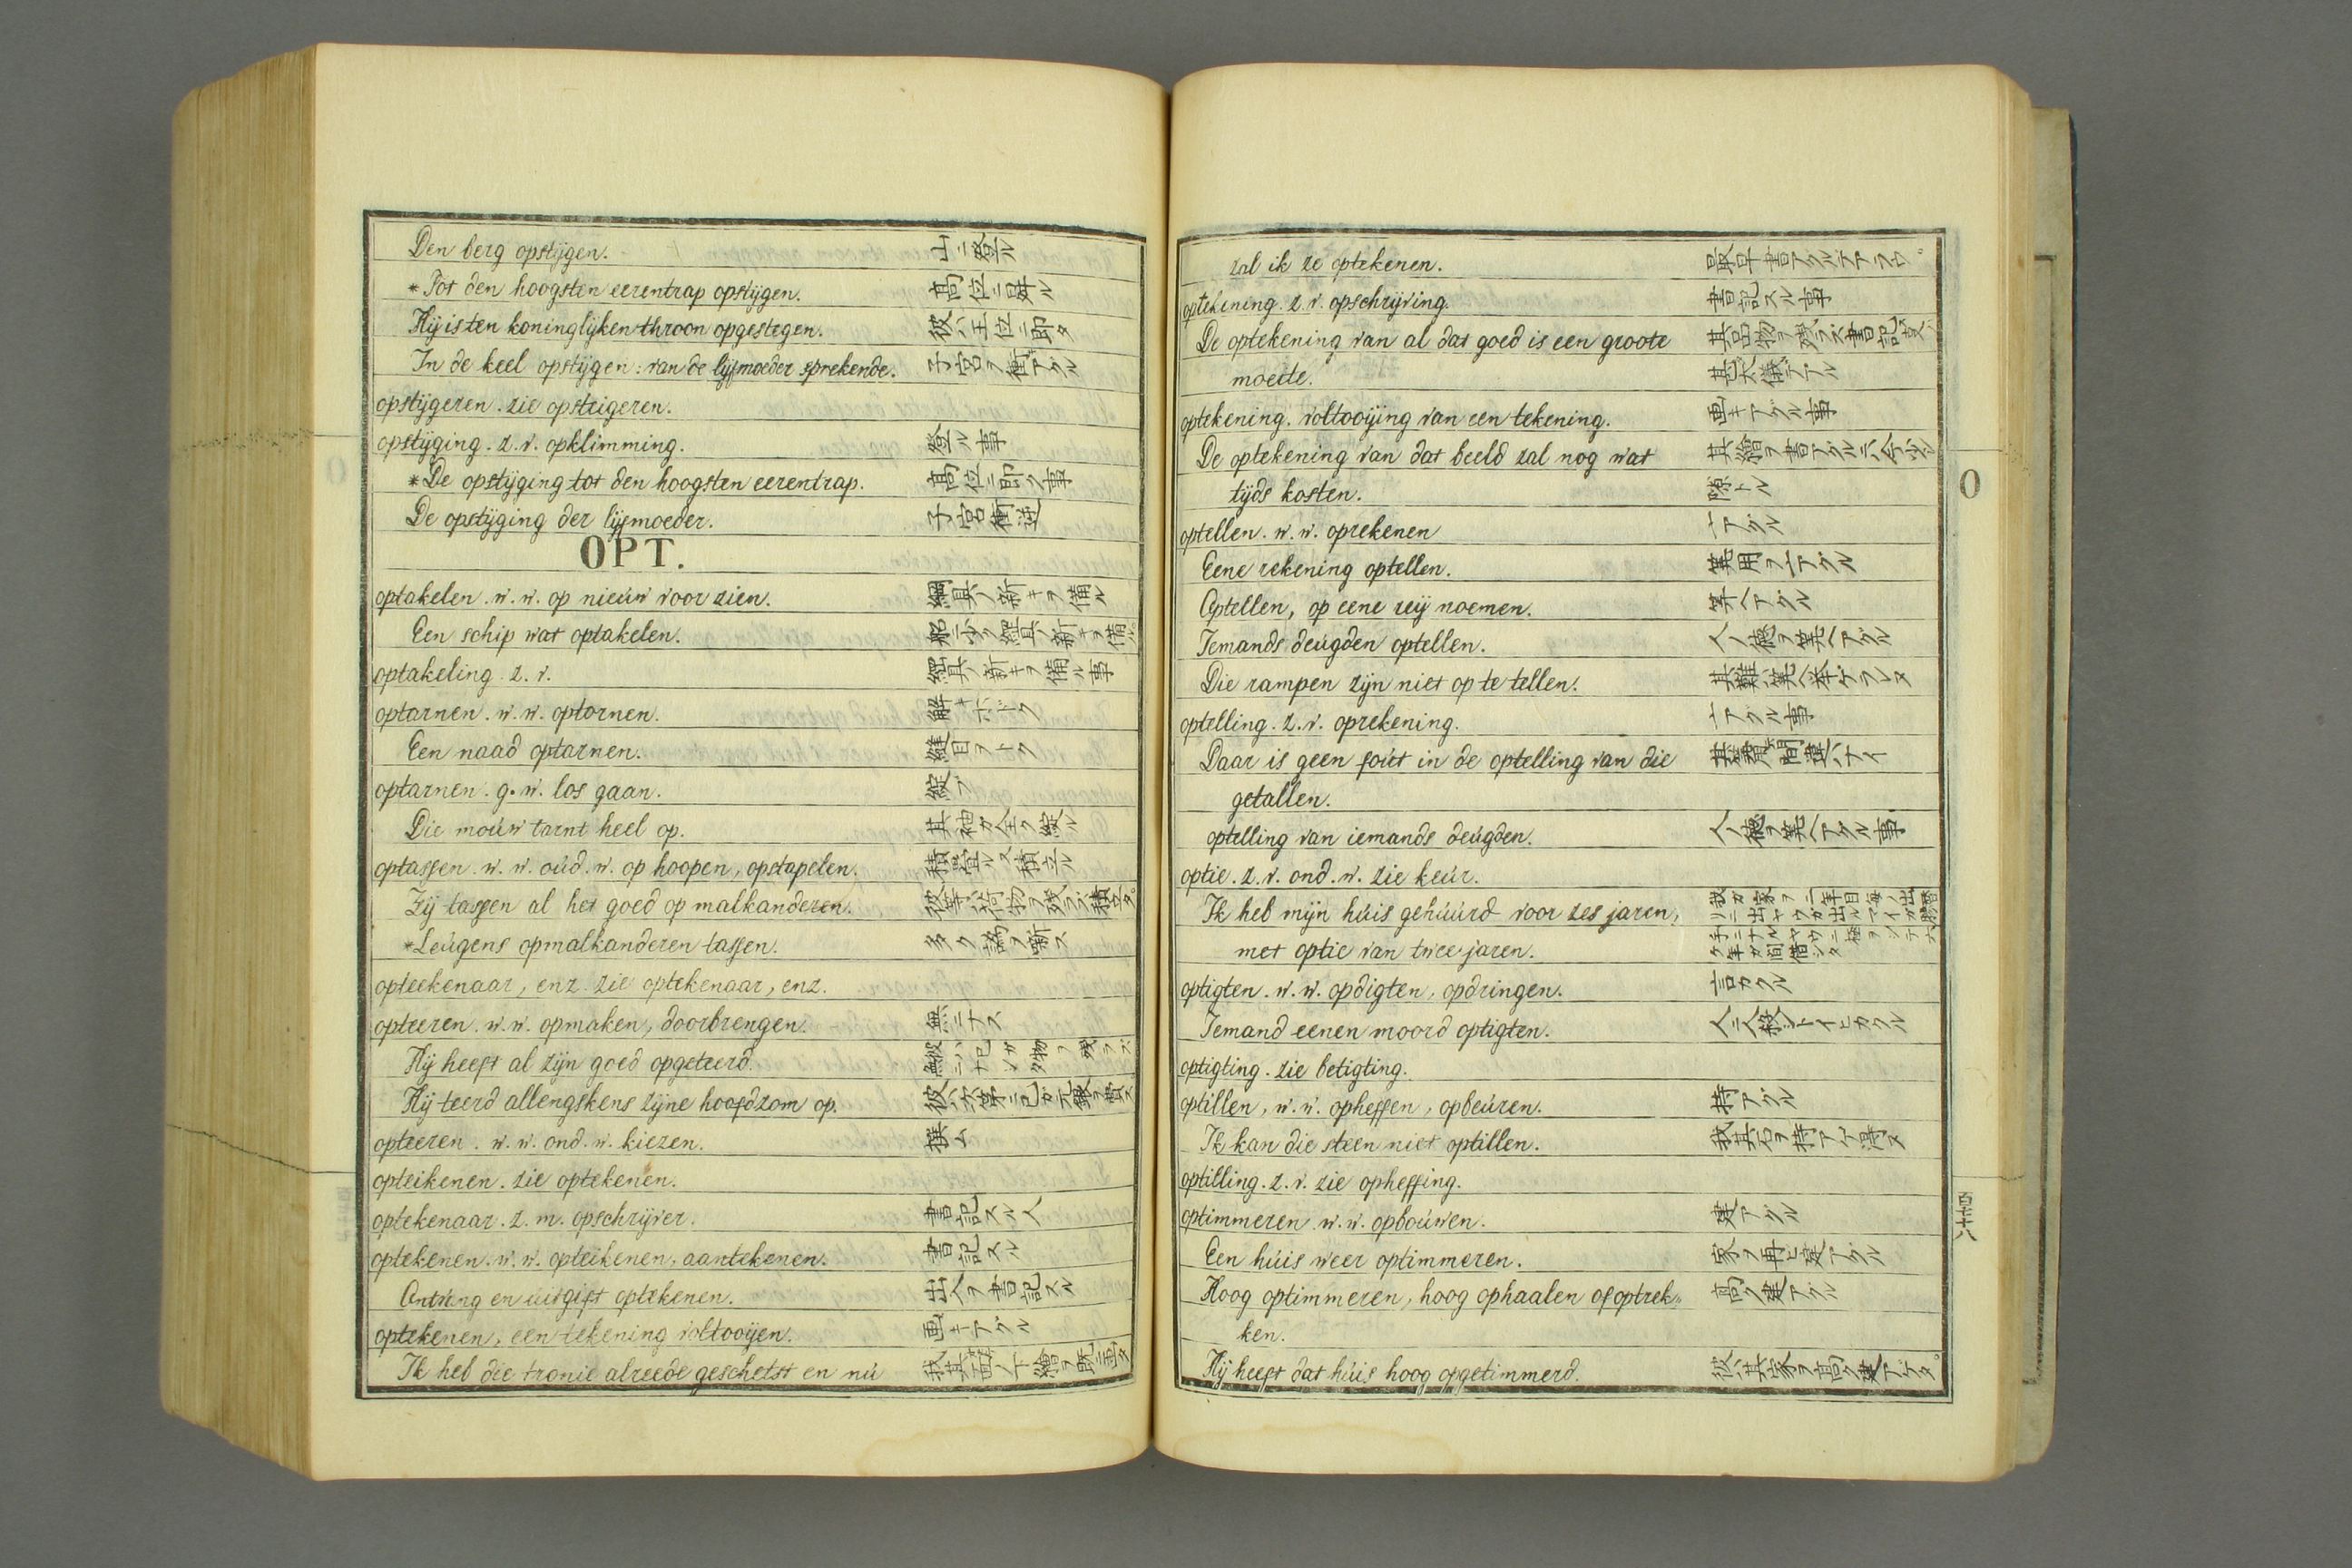 Den berg opstijgen. 山ニ登ル
*Tot den hoogsten eerentrap opstijgen. 高位ニ昇ル
Hij is ten koninglijken throon opgestegen. 彼ハ王位ニ即タ
In de keel opstijgen: van de lijfmoeder sprekende. 子宮ヲ衝アグル
opstijgeren. zie opsteigeren.
opstijging. z. v. opklimming. 登ル事
*De opstijging tot den hoogsten eerentrap. 高位ニ即ク事
De opstijging der lijfmoeder. 子宮衝逆
OPT.
optakelen. w. w. op nieúw voor zien. 綱具ノ新キヲ備ル
Een schip wat optakelen. 船ニ少ク綱具ノ新キヲ備ル
optakeling. z. v. 綱具ノ新キヲ備ル事
optarnen. w. w. optornen. 解キホドク
Een naad optarnen. 縫目ヲトク
optarnen. g. w. los gaan. 綻ブ
Die moúw tarnt heel op. 其袖ガ全ク綻ル
optassen. w. w. oúd. w. op hoopen, opstapelen. 積畳ル又積立ル
Zij tassen al het goed op malkanderen. 彼等ハ荷物ヲ残ラズ積立タ。
*Leúgens opmalkanderen tassen. 多ク偽ヲ
opteekenaar, enz. zie optekenaar, enz.
opteeren. w. w. opmaken, doorbrengen. 無ニナス
Hij heeft al zijn goed opgeteerd. 彼ハ己ガ物ヲ残ラズ無ニナシタ
Hij teerd allengskens zijne hoofdzom op. 彼ハ次第ニ己ガ元銀ヲ
opteeren. w. w. ond. w. kiezen. 撰ム
opteikenen. zie optekenen.
optekenaar. z. m. opschrijver. 書記スル人
optekenen. w. w. opteikenen, aantekenen. 書記スル
Ontvang en uitgift optekenen. 出入ヲ書記スル
optekenen, een tekening voltooijen. 画キアグル
Ik heb die tronie alreede geschetst en nú 我其 ノ下繪ヲ既ニ画タ
zal ik ze optekenen. 最早書アグルデアラウ。
optekening. z. v. opschrijving. 書記スル事
De optekening van al dat goed is een groote 其品物ヲ残ラズ書記ス事ハ
moeite. 甚大儀デアル
optekening. voltooijing van een tekening. 画キアグル事
De optekening van dat beeld zal nog wat 其繪ヲ書アグルニハ今少シ
tijds kosten. 隙トル
optellen. w. w. oprekenen 一アグル
Eene rekening optellen. 筭用ヲ一アグル
Optellen, op eene reij noemen. 筭ヘアグル
Iemands deúgden optellen. 人ノ徳ヲ筭ヘアグル
Die rampen zijn niet op te tellen. 其難ハ筭ヘ挙ゲラレヌ
optelling. z. v. oprekening. 一アグル事
Daar is geen foút in de optelling van die 其 間違ハナイ
getallen.
optelling van iemands deúgden. 人ノ徳ヲ筭ヘアグル事
optie. z. v. ond. w. zie keúr.
Ik heb mijn húis gehúúrd voor zes jaren, 我ガ家ヲ二年目毎ノ出
met optie van twee jaren.
optigten. w. w. opdigten, opdringen. 言カクル
Iemand eenen moord optigten. 人ニ人殺シトイヒカクル
optigting. zie betigting.
optillen, w. w. opheffen, opbeúren. 持アグル
Ik kan die steen niet optillen. 我其石ヲ持アゲ得ヌ
optilling. z. v. zie opheffing.
optimmeren. w. w. opboúwen. 建アグル
Een húis weer optimmeren. 家ヲ再ヒ建アグル
Hoog optimmeren, hoog ophaalen of optrek- 高ク建アグル
ken.
Hij heeft dat húis hoog opgetimmerd. 彼ハ其家ヲ高ク建アゲタ。
O
百六十八